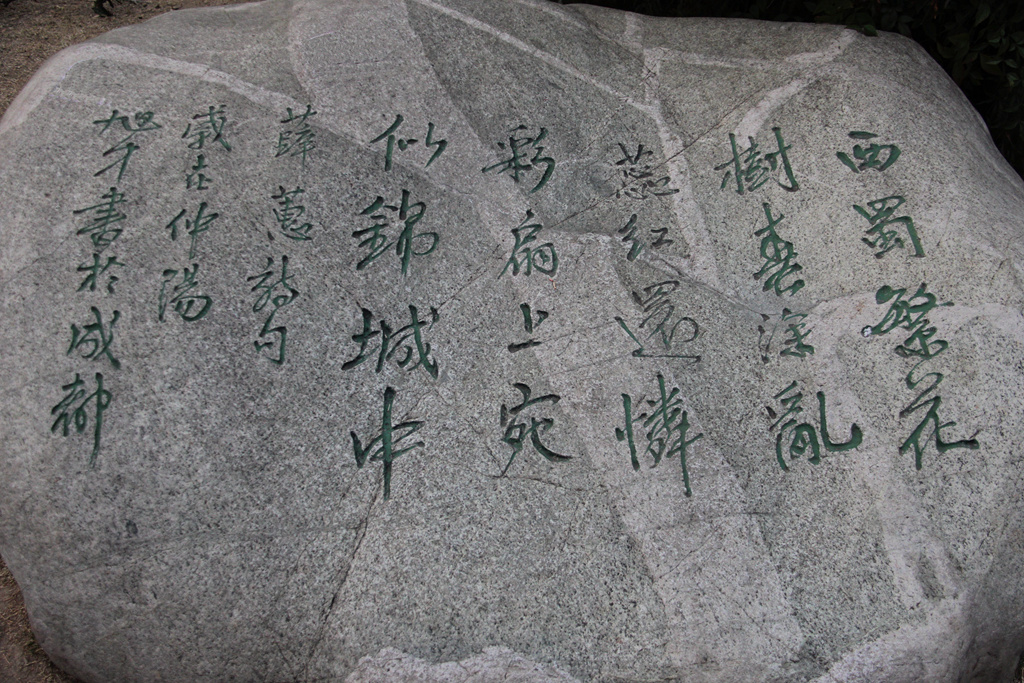 西蜀繁花
樹春深亂
蕊紅還憐
彩扇上宛
似錦城中
薛蕙詩句
歲在仲陽
旭千書於成都